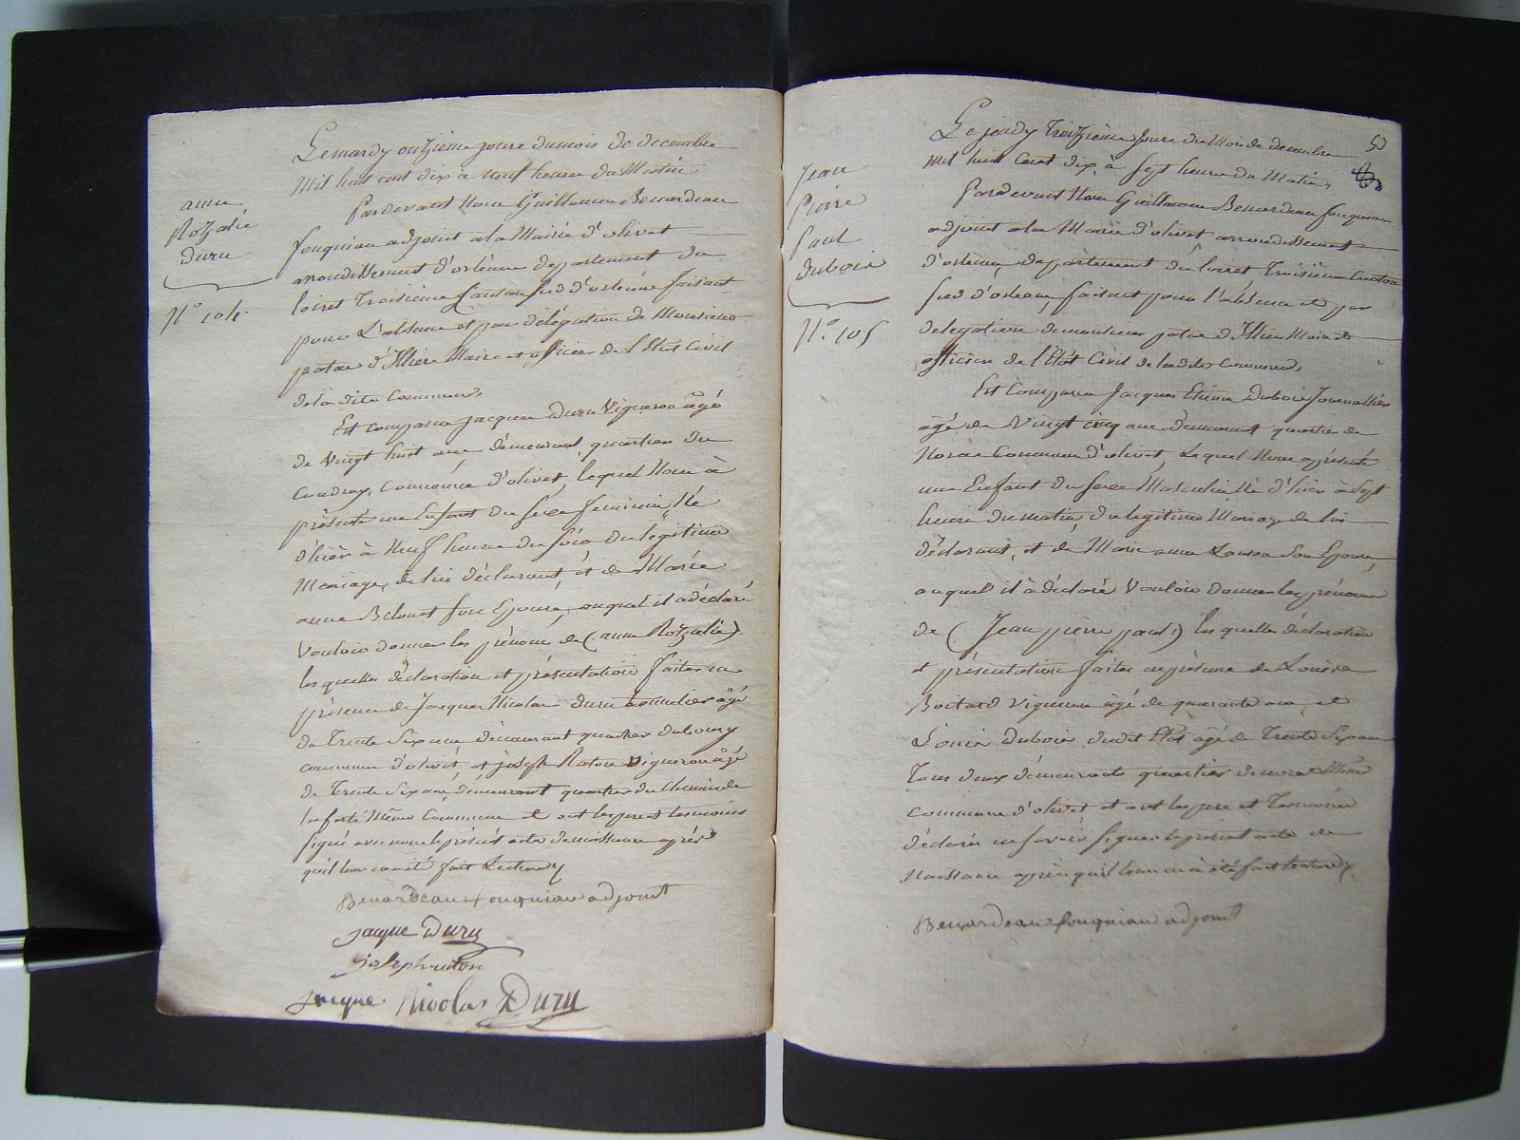 Le mardy onzieme joure du mois de decembre
mil huit cent dix à neuf heure du Matin
anne
Rozalié
Duru
N.° 104.
Pardevant Nous Guillaume Benardeau
fouqniau adjoint a la Mairie d'olivet
arrondissement d'orleans departement du
loiret Troisieme Canton sud d'orleans faisant
pour L'absence et par délégation de Monsieur
patas d'Illiers Maire et officier de l'Etat Civil
de la dite Commune,
Est comparu jacques Duru Vigneron âgé
de Vingt huit ans demeurant quartier du
Coudray, commune d'olivet, lequel Nous à
présenté un Enfant du sexe feminin Né
d'hièr à Neuf heure du soir du légitime
Mariage, de lui déclarant, et de Marie
anne Belouet son Epouse, auquel il a déclaré
Vouloir donner les prénoms de (anne Rozalie)
les quelles déclaration et présentation faites en
présence de Jacques Nicolas Duru âgé
de Trente Six ans demeurant quartier du bourg
commune d'olivet, et joseph Roton vigneron âgé
de Trente Six ans, demeurant quartier du Chemin de
la ferté Même Commune et ont les pere et temoins
signé avec nous le présent acte de naissance après
qu'il leur en a été fait Lecture
Benardeau fouqniau adjoint
jacque Duru
joseph roton
jacque Nicolas Duru
50
Le jeudy Treizieme Jours du Mois de decembre
mil huit Cent dix à sept heure du Matin,
Jean
Pierre
Paul
Dubois
N.° 105
Pardevant Nous Guillaume Benardeau fouqniau
adjoint a la Mairie d'olivet arrondissement
d'orleans, departement du loiret Troisieme Canton
sud d'orleans, faisant pour l'absence et par
delegation de monsieur patas d'Illiers Maire et
officier de l'État Civil de la dite Commune,
Est Comparu Jacques Etienne Dubois Journallier
âgé de Vingt cinq ans demeurant quartier de
Commune d'olivet, Lequel Nous a présenté
un Enfant du sexe Masculin Né d'hier à Sept
heure du matin, du legitime Mariage de lui
déclarant, et de Marie anne son Epouse,
auquel il à déclaré Vouloir donner les prénoms
de (Jean pierre paul) les quelles déclaration
et présentation faites en présence de Louis
Boitard vigneron âgé de quarante ans, et
Louis Dubois, dudit Etat âgé de Trente Six ans
Tous deux demeurants quartier de
commune d'olivet et ont les pere et Temoins
déclarés ne savoir signer le présent acte de
Naissance après qu'il leur en à été fait lecture
Benardeau fouqniau adjoint